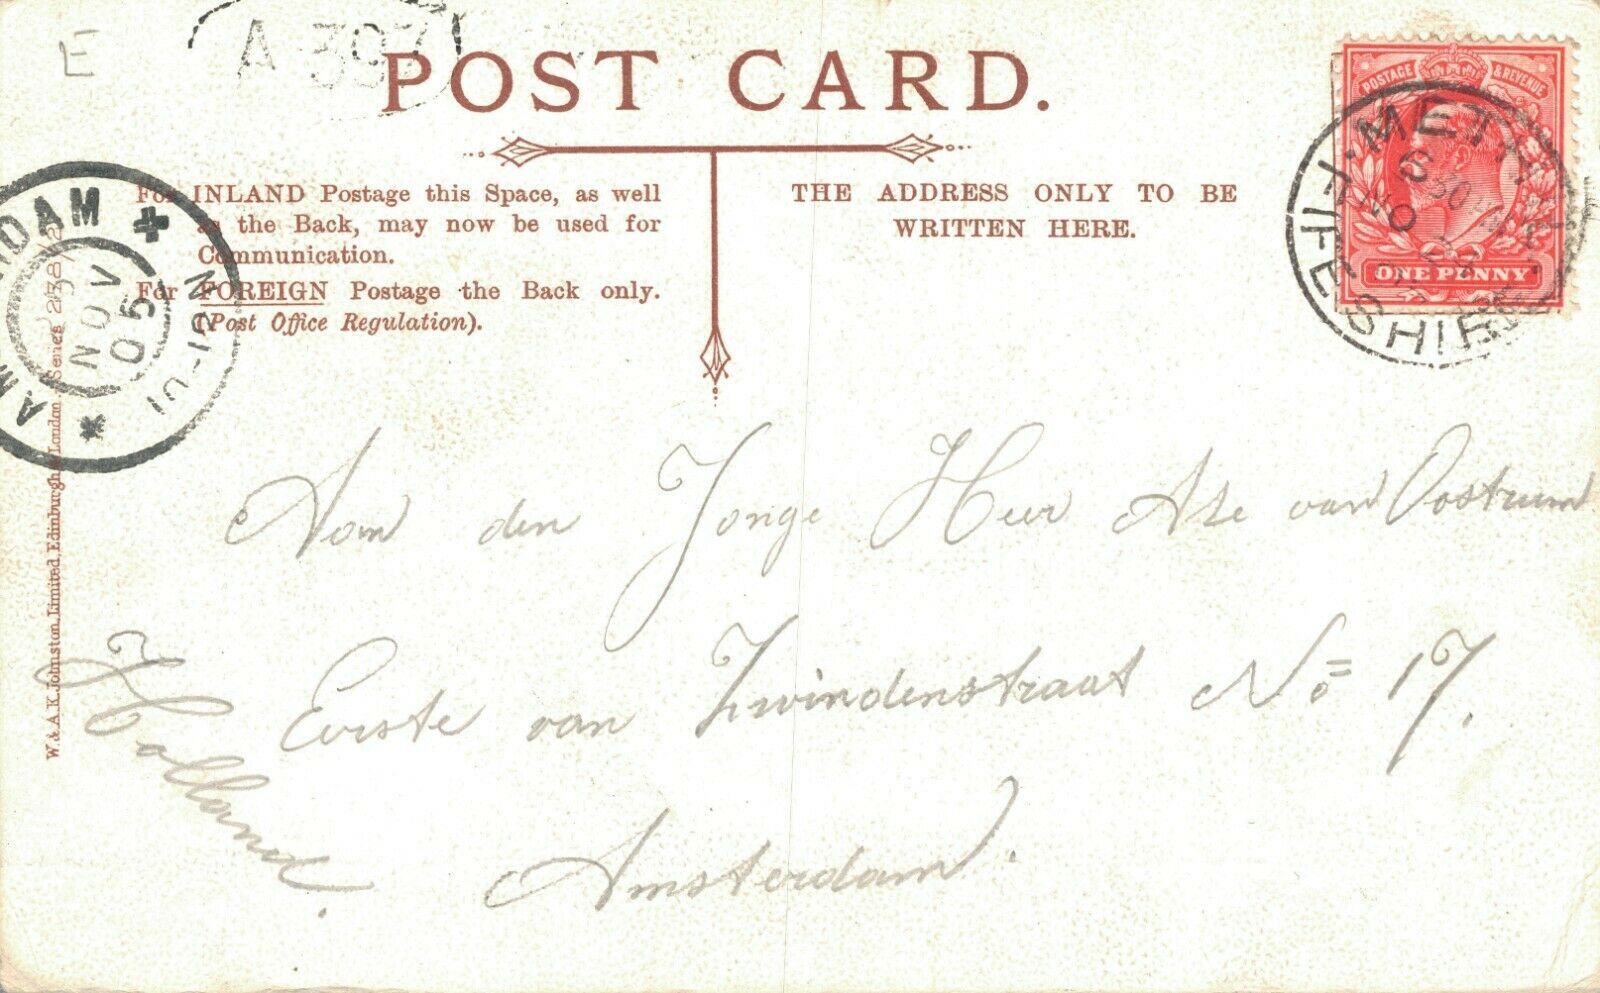 E
A 397
POST CARD.
For INLAND Postage this Space, as well
as the Back, may now be used for
Communication.
For FOREIGN Postage the Back only.
(Post Office Regulation).
THE ADDRESS ONLY TO BE
WRITTEN HERE.
POSTAGE & REVENUE
ONE PENNY
METH
FIFESHIRE
NO 24
NOV
05
W. & A.K. Johnston, Limited, Edinburgh & London. Series
Aan den Jonge Heer Ate van Oostrum
Eerste van Zwindenstraat No 17.
Amsterdam.
Holland.